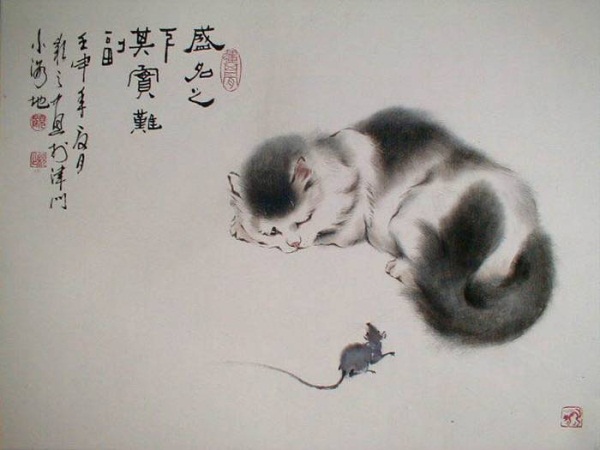 盛名之
下
其實難
副
壬申年夏月
於津門
小海地